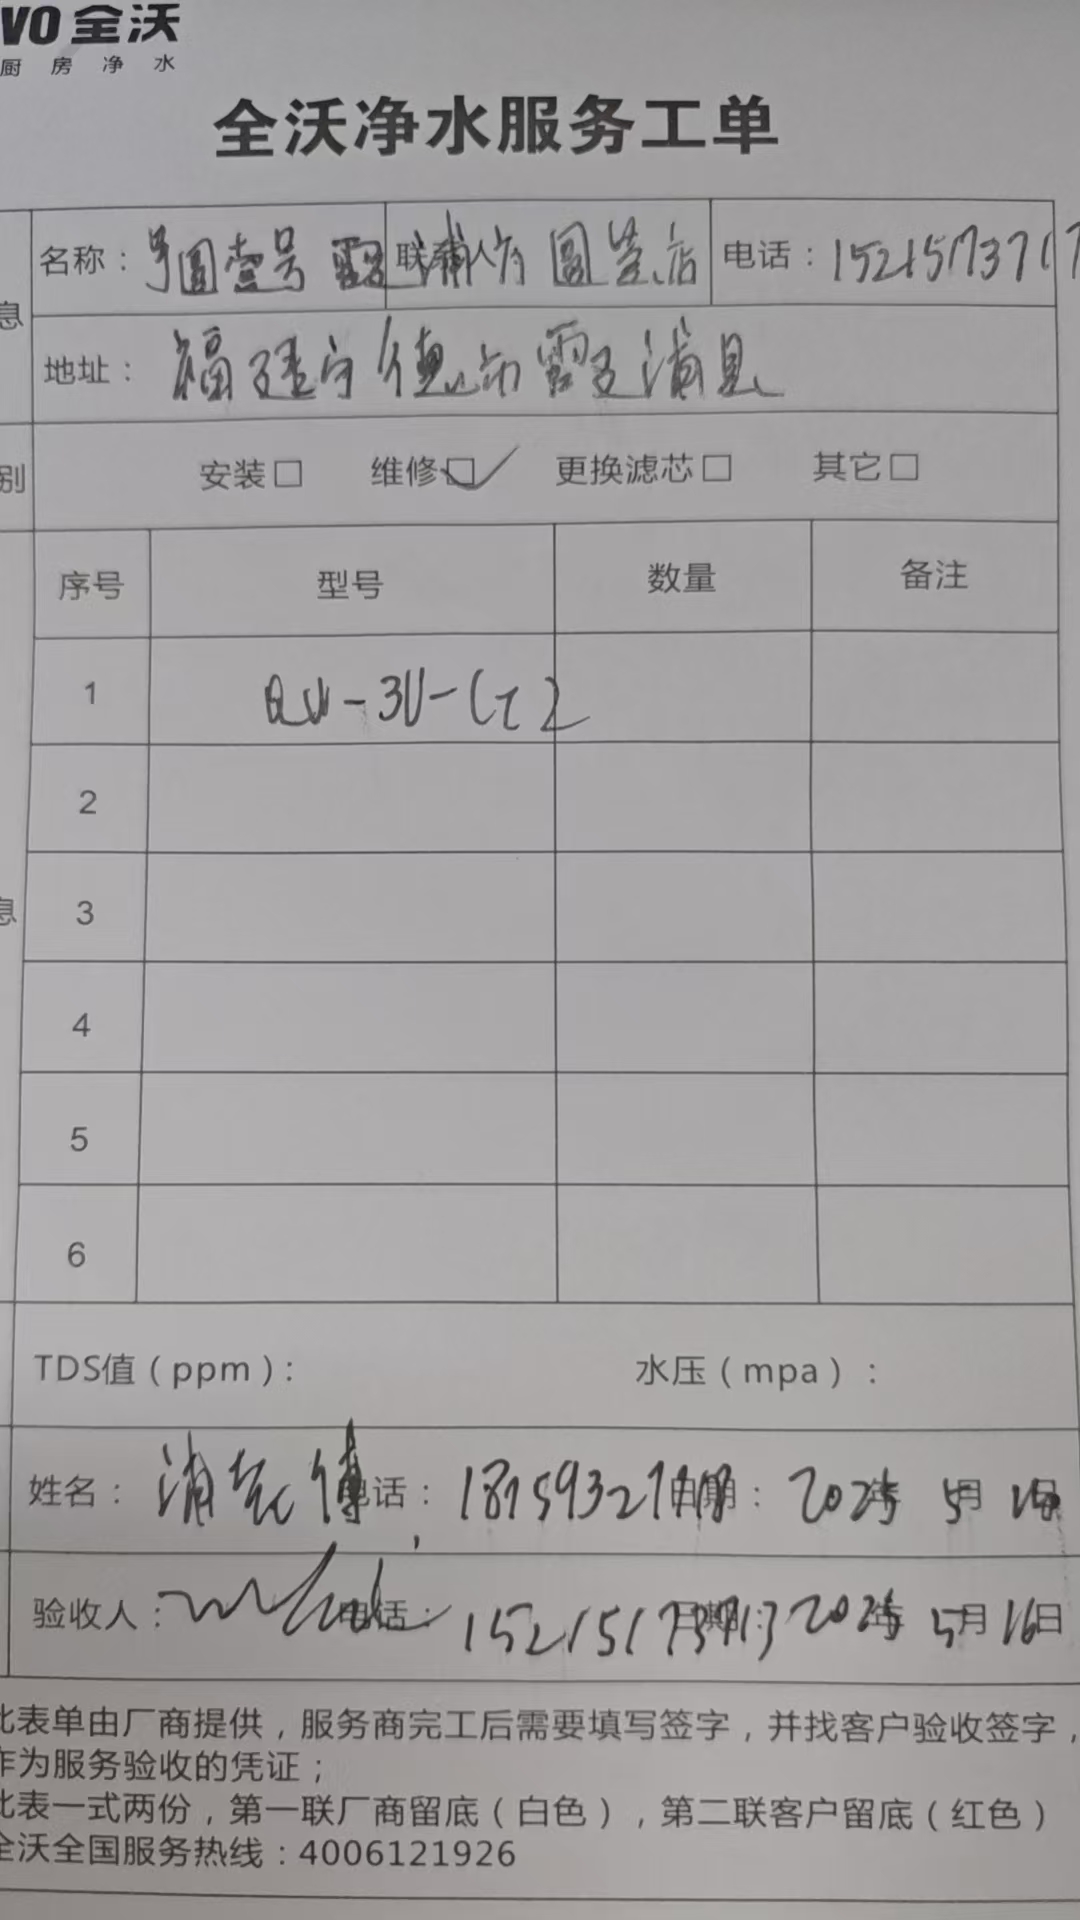 VO 全沃
厨房净水
全沃净水服务工单
息
名称： 号圆壹号 联系人 圆 店 电话：152151737
地址： 福建宁德市霞浦县
别
安装□ 维修☑ 更换滤芯□ 其它□
序号 型号 数量 备注
1 QW-3U-
2
3
息
4
5
6
TDS值（ppm）： 水压（mpa）：
姓名： 电话：181593271 日期：2025年 5月 16日
验收人： 电话：15215173713 日期：2025年 5月16日
此表单由厂商提供，服务商完工后需要填写签字，并找客户验收签字，
作为服务验收的凭证；
此表一式两份，第一联厂商留底（白色），第二联客户留底（红色）
全沃全国服务热线：4006121926